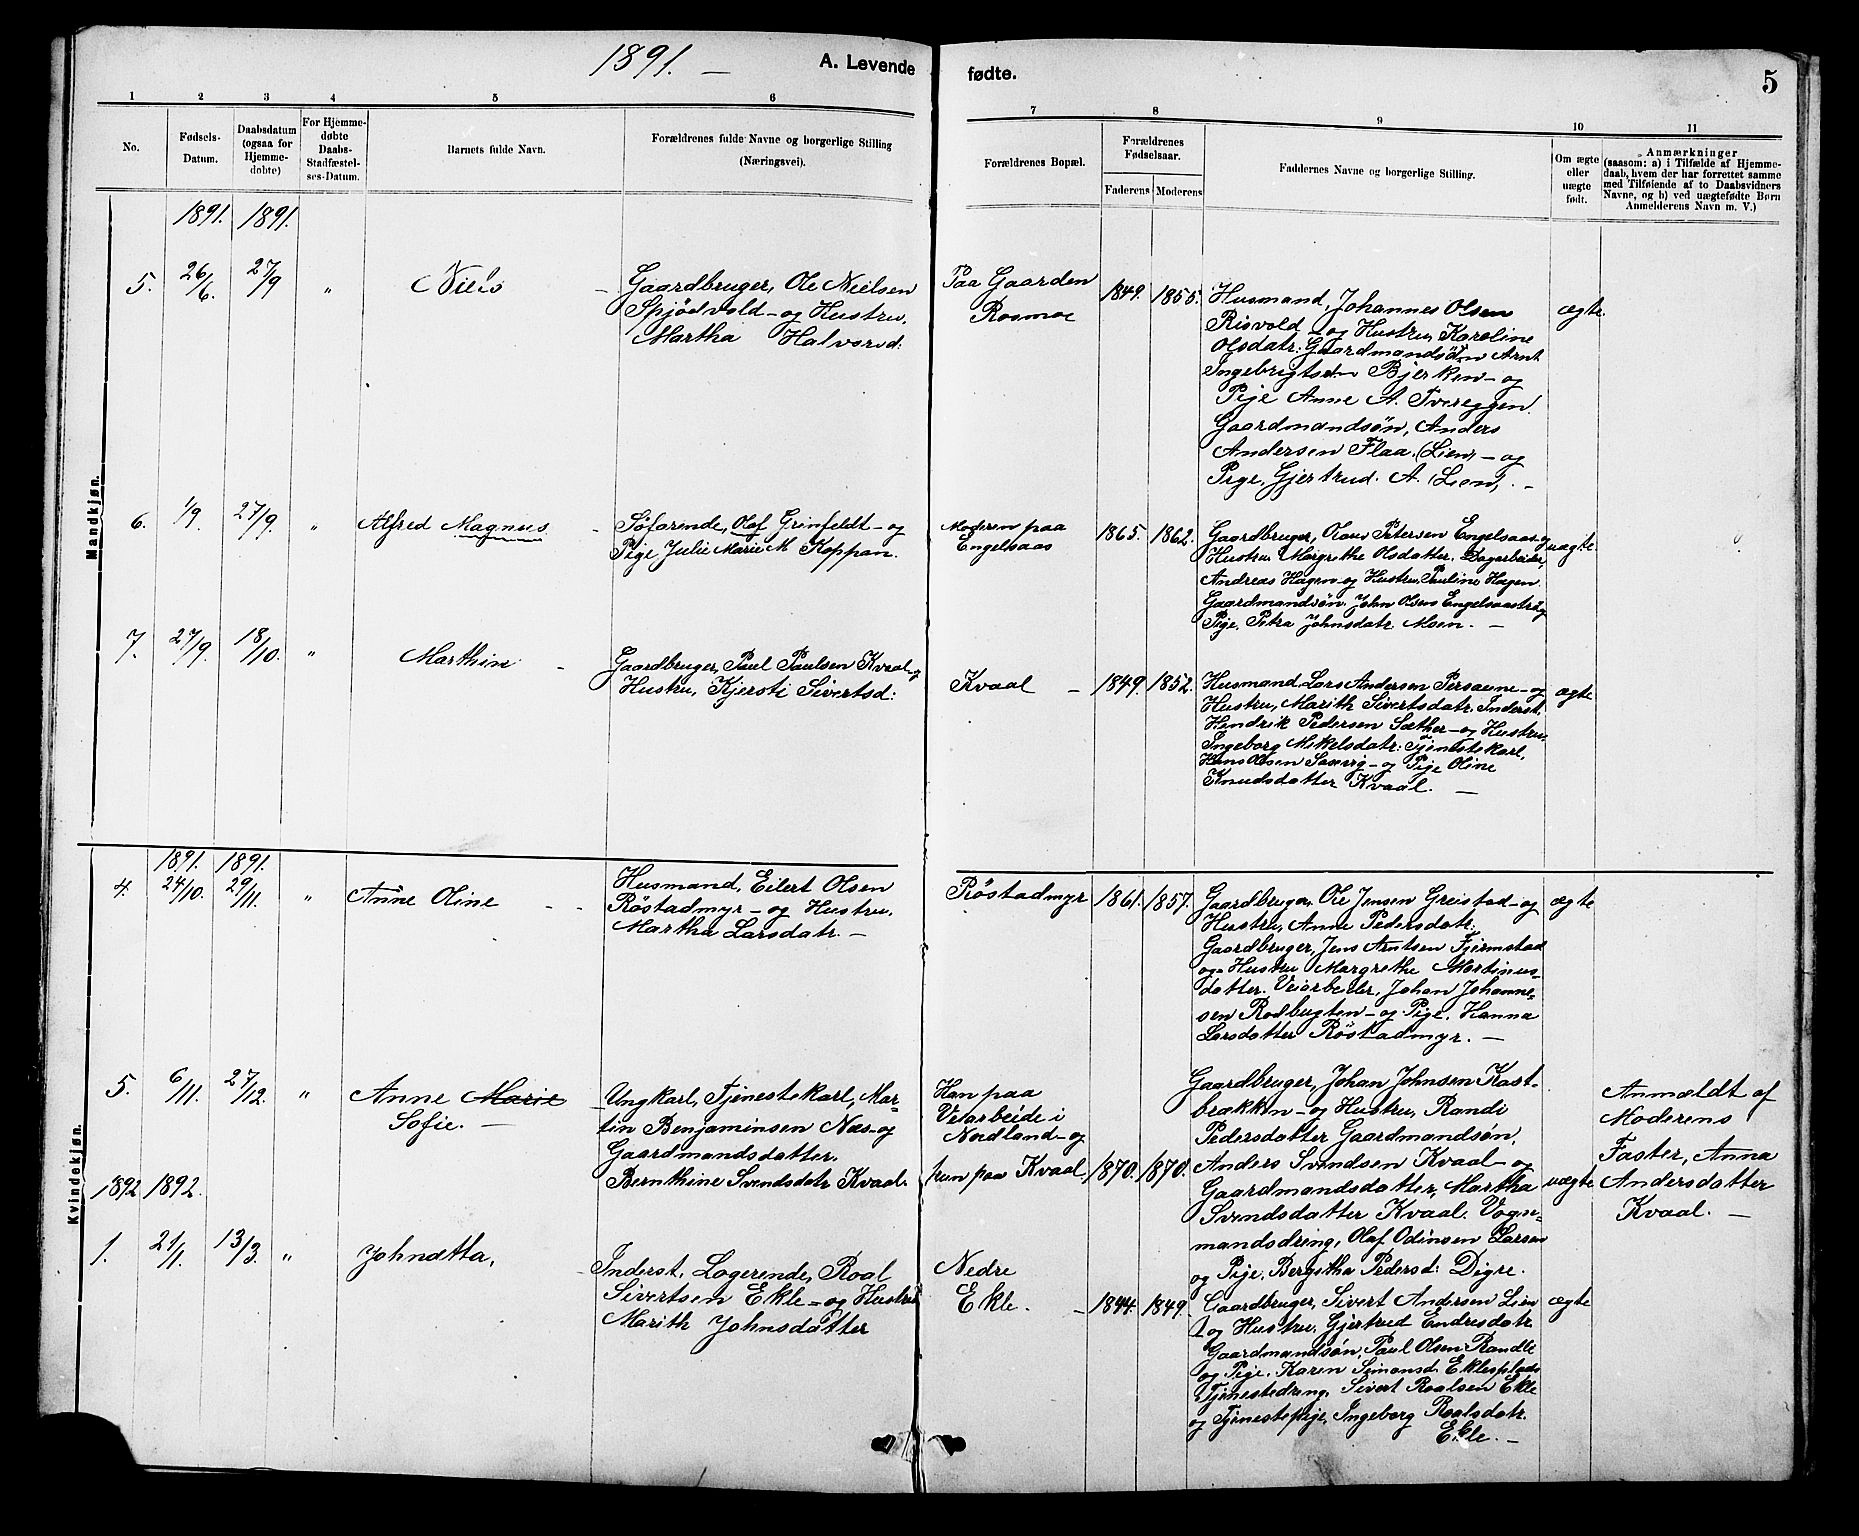 1891. —
A. Levende
fødte.
5
1 2 3 4 5 6
7 8 9 10 11
No.
Fødsels-
Datum.
Daabsdatum
(ogsaa for
Hjemme-
døbte)
For Hjemme-
døbte
Daabs-
Stadfæstel-
ses-Datum.
Barnets fulde Navn.
Forældrenes fulde Navne og borgerlige Stilling
(Næringsvei).
Forældrenes Bopæl.
Forældrenes
Fødselsaar.
Faderens Moderens
Faddernes Navne og borgerlige Stilling.
Om ægte
eller
uægte
født.
Anmærkninger
(saasom: a) i Tilfælde af Hjemme-
daab, hvem der har forrettet samme
med Tilføiende af to Daabsvidners
Navne, og b) ved uægtefødte Børn
Anmelderens Navn m. V.)
Mandkjøn.
1891. 1891.
5. 26/6. 27/9 " Niels –
Gaardbruger, Ole Nielsen
Spjødvold – og Hustru,
Martha Halvorsd:
Paa Gaarden
Rosmoe
1849. 1855.
Husmand, Johannes Olsen
Risvold – og Hustru, Karoline
Olsdatr: Gaardmandsøn Arnt
Ingebrigtsen Bjerken – og
Pige Anne A. Tvereggen.
Gaardmandsøn, Anders
Andersen Flaa (Lien) – og
Pige, Gjertrud. A. (Lien). –
ægte.
6. 1/9. 27/9. " Alfred Magnus –
Søfarende, Olaf Grinfeldt – og
Pige Julie Marie M Koppan.
Moderen paa
Engelsaas
1865. 1862.
Gaardbruger, Olaus Petersen Engelsaas og
Hustru Margrethe Olsdatter. Dagarbeider,
Andreas Hagen – og Hustru, Pauline Hagen.
Gaardmandsøn John Olsens Engelsaastrø og
Pige. Petra Johnsdatr. Moen. –
uægte.
7. 27/9. 18/10. " Marthin –
Gaardbruger, Paul Paulsen Kvaal – og
Hustru, Kjersti Sivertsd:
Kvaal –
1849. 1852.
Husmand Lars Andersen Persaune – og
Hustru, Marith Sivertsdatr. Inderst.
Hendrik Pedersen Sæther – og Hustru,
Ingeborg Mikelsdatr: Tjenestekarl,
Hans Olsen – og Pige Oline
Knudsdatter Kvaal. –
ægte
Kvindekjøn.
1891. 1891.
4. 24/10. 29/11. " Anne Oline – –
Husmand, Eilert Olsen
Røstadmyr – og Hustru.
Martha Larsdatr. –
Røstadmyr
1861. 1857.
Gaardbruger, Ole Jensen Greistad – og
Hustru, Anne Pedersdatr:
Gaardbruger, Jens Arntsen Fjermstad
og Hustru Margrethe Martinus-
datter. Veiarbeider, Johan Johanne-
sen Rodbugten – og Pige. Hanna
Larsdatter Røstadmyr. –
ægte
5. 6/11. 27/12. " Anne Marie
Sofie. –
Ungkarl, Tjenestekarl, Mar-
tin Benjaminsen Næs – og
Gaardmandsdatter.
Bernthine Svendsdatr Kvaal.
Han paa
Veiarbeide i
Nordland – og
hun paa Kvaal.
1870. 1870.
Gaardbruger, Johan Johnsen Kast-
brækken – og Hustru, Randi
Pedersdatter Gaardmandsøn,
Anders Svendsen Kvaal – og
Gaardmandsdatter, Martha
Svendsdatter Kvaal. Vogn-
mandsdreng, Olaf Odinsen Larsen
og Pige. Bergitha Pedersd: Digre.
uægte
Anmældt af
Moderens
Faster, Anna
Andersdatter
Kvaal. –
1892 1892.
1. 21/1. 13/3. " Johnetta,
Inderst. Logerende, Roal
Sivertsen Ekle – og Hustru
Marith Johnsdatter
Nedre
Ekle. –
1844. 1849.
Gaardbruger, Sivert Andersen Lien
og Hustru. Gjertrud Endresdatr.
Gaardmandsøn, Paul Olsen Randle
og Pige. Karen Simonsd. Ekleplads
Tjenestedreng, Sivert Roalsen Ekle
og Tjenestepige, Ingeborg Roalsdatr.
Ekle. –
ægte